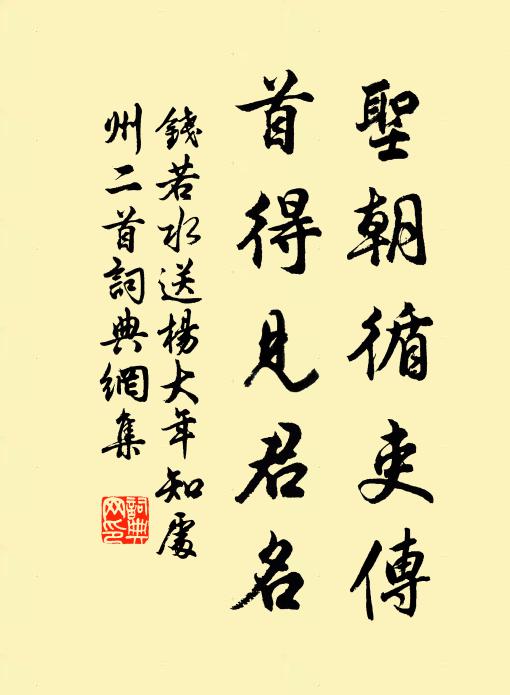 聖朝循吏傳
首得見君名
錢若水送楊大年知處
州二首詞典網集
詞典
网印